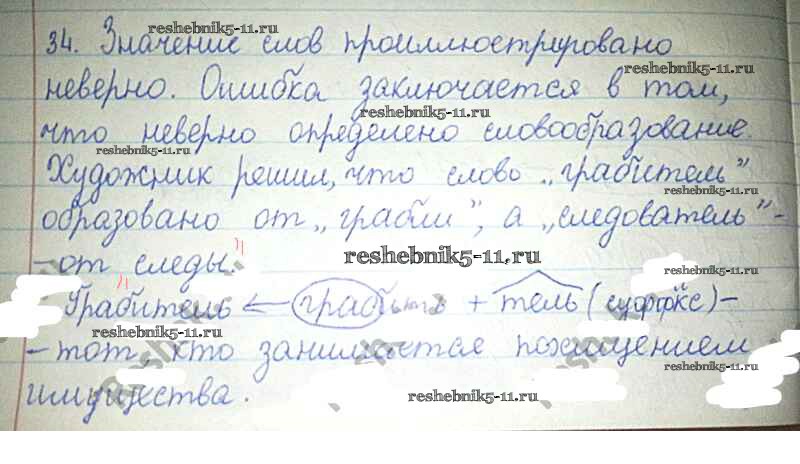 34. Значение слов проиллюстрировано
неверно. Ошибка заключается в том,
что неверно определено словообразование.
Художник решил, что слово „грабитель"
образовано от „грабли", а „следователь" -
- от следы."
Грабитель ← грабить + тель (суффикс) -
- тот, кто занимается похищением
имущества.
reshebnik5-11.ru
reshebnik5-11.ru
reshebnik5-11.ru
reshebnik5-11.ru
reshebnik5-11.ru
reshebnik5-11.ru
reshebnik5-11.ru
reshebnik5-11.ru
reshebnik5-11.ru
reshebnik5-11.ru